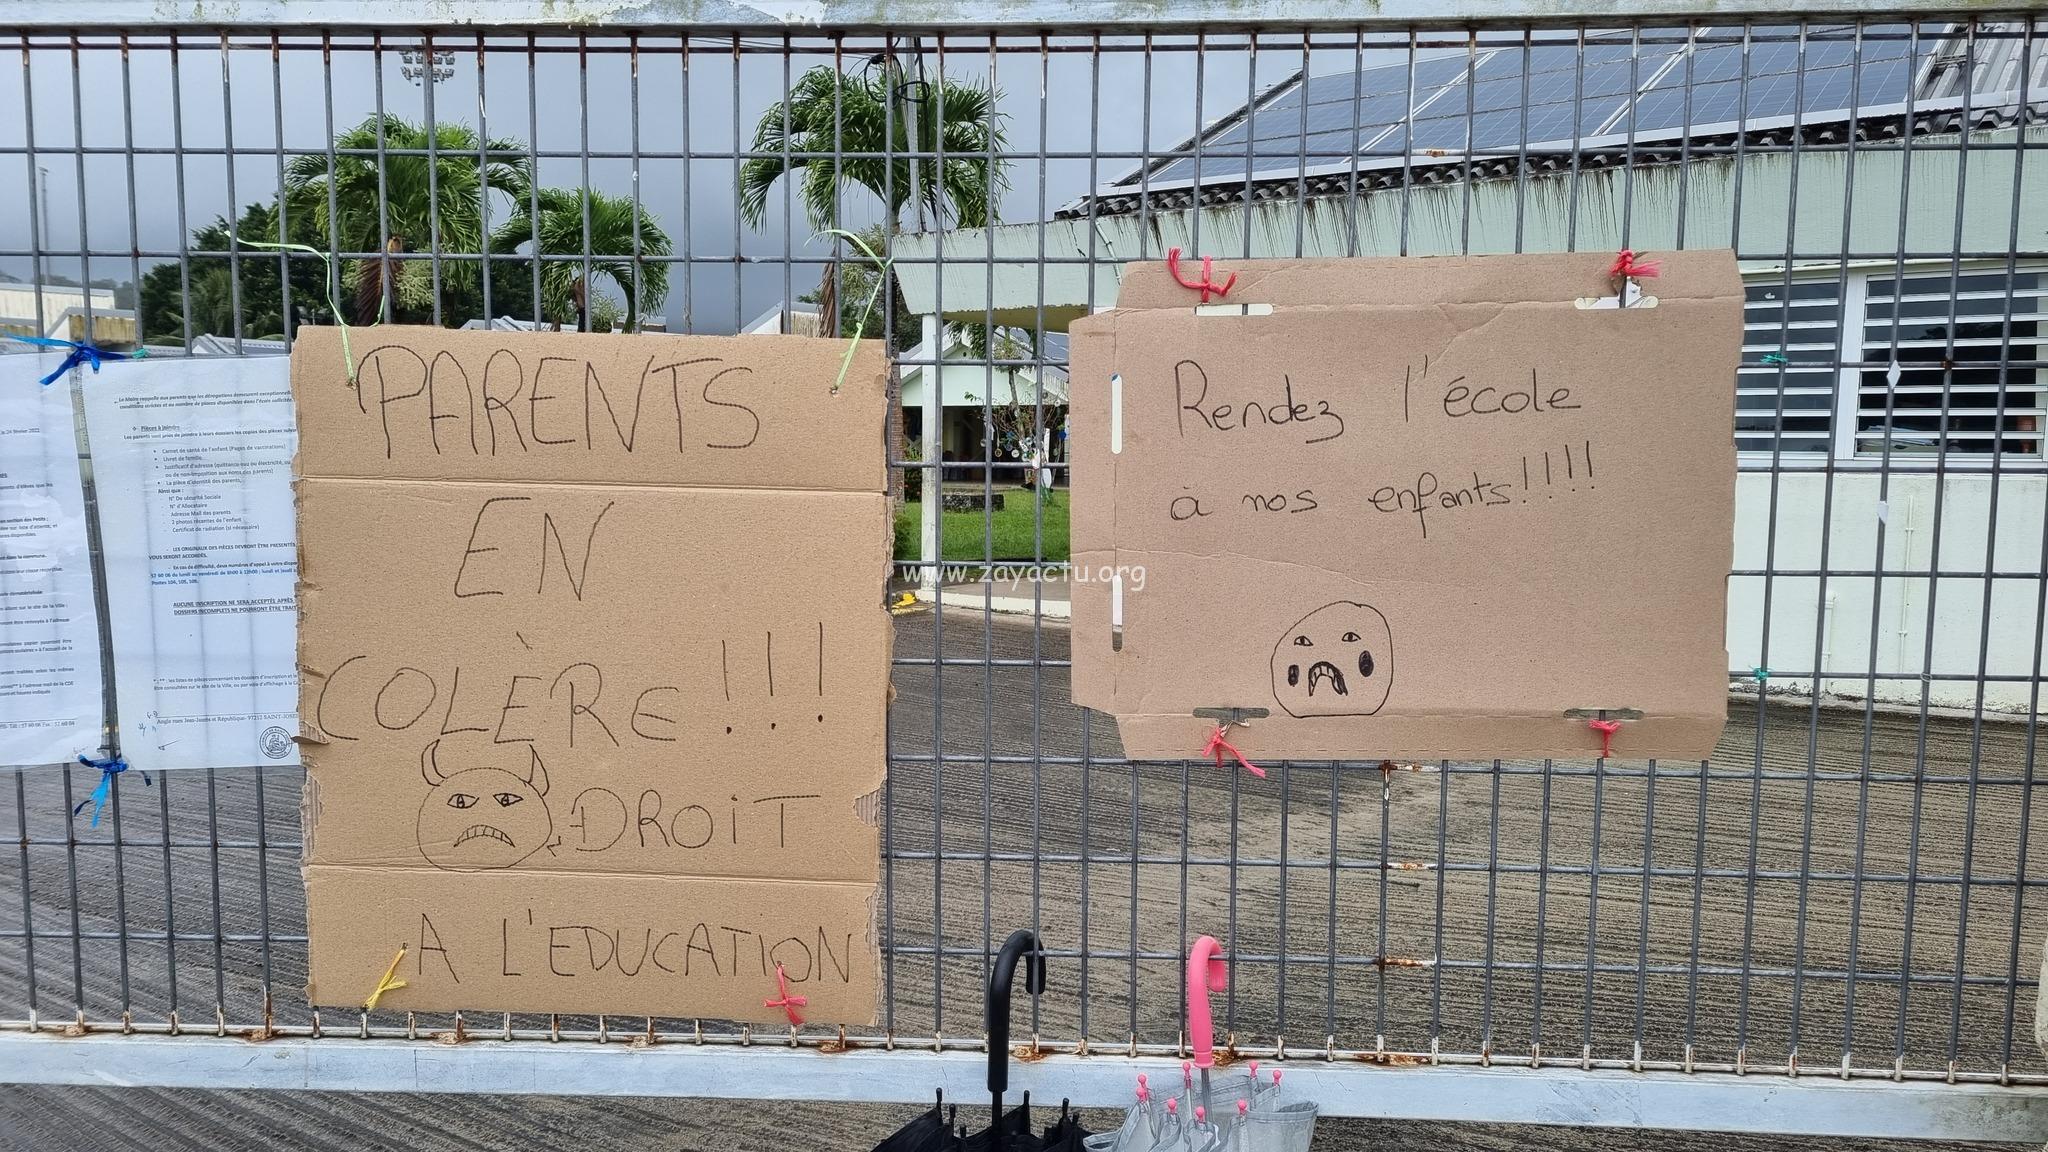 Le Maire rappelle aux parents que les dérogations demeurent exceptionnel
conditions strictes et au nombre de places disponibles dans l'école sollicitée.
le 24 février 2022
Pièces à joindre
Les parents sont priés de joindre à leurs dossiers les copies des pièces
Carnet de santé de l'enfant (Pages de vaccinations)
Livret de famille
Justificatif d'adresse (quittance eau ou électricité, ou
ou de non-imposition aux noms des parents)
La pièce d'identité des parents,
Ainsi que :
N° De sécurité Sociale
N° d'Allocataire
Adresse Mail des parents
2 photos récentes de l'enfant
Certificat de radiation (si nécessaire)
LES ORIGINAUX DES PIÈCES DEVRONT ÊTRE PRESENTÉS
VOUS SERONT ACCORDÉS.
En cas de difficulté, deux numéros d'appel à votre dispo
57 60 06 du lundi au vendredi de 8h00 à 12h00 ; lundi et jeudi
Postes 104, 105, 108.
AUCUNE INSCRIPTION NE SERA ACCEPTÉE APRÈS
DOSSIERS INCOMPLETS NE POURRONT ÊTRE TRAIT
les listes de pièces concernant les dossiers d'inscription et
être consultées sur le site de la Ville, ou par voie d'affichage à la Ca
Angle rues Jean-Jaurès et République- 97212 SAINT-JOSE
PARENTS
EN
COLÈRE !!!
DROIT
A L'EDUCATION
Rendez l'école
à nos enfants!!!!
www.zayactu.org